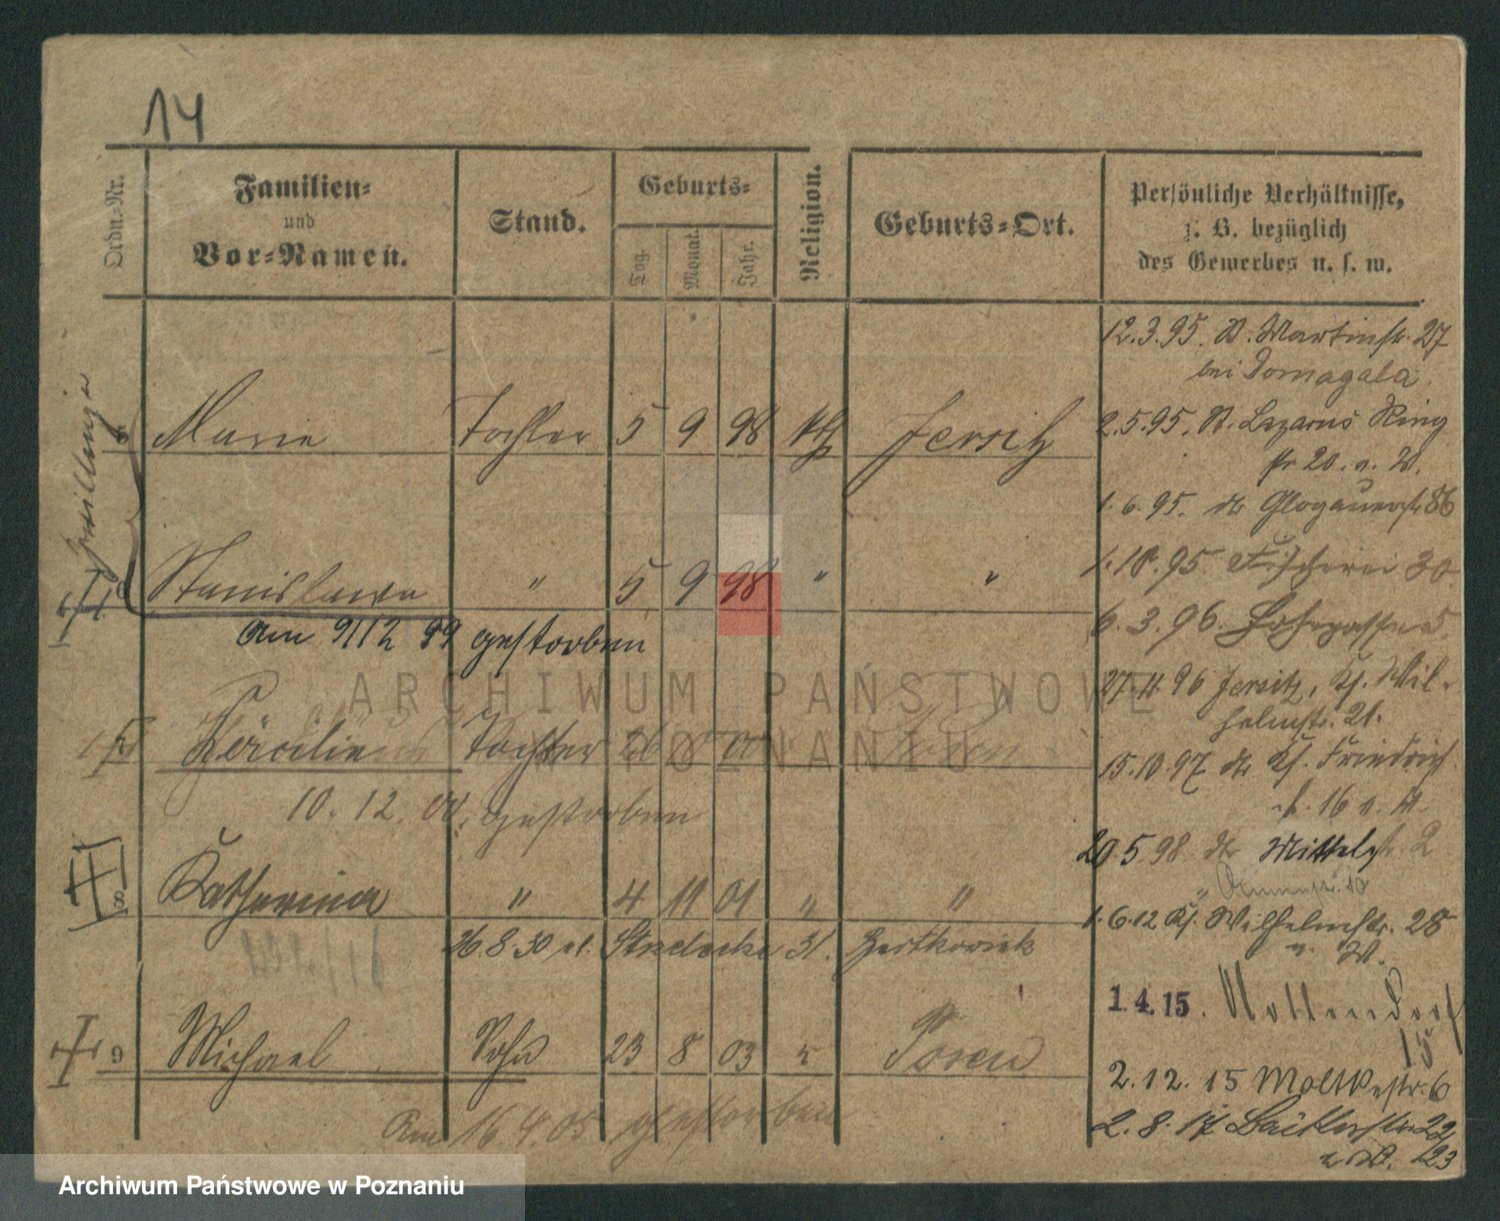 14
Ordn=Nr.
Familien=
und
Vor=Namen.
Stand.
Geburts=
Tag.
Monat.
Jahr.
Religion.
Geburts=Ort.
Persönliche Verhältnisse,
z. B. bezüglich
des Gewerbes u. s. w.
12.3.95. St. Martinstr. 27
bei Domagala.
2.5.95. St. Lazarus Ring
str 20. n. W.
1.6.95. Glogauerstr. 86
1.10.95. Fischerei 30
6.3.96. Lohgasse 5.
27.11.96 Jersitz, Ks. Wil-
helmstr. 21.
15.10.97 Ks. Friedrich
str. 16 n. W.
20.5.98 Mittelstr. 2
" Blumenstr. 10
1.6.12 Ks. Wilhelmstr. 28
n. W.
1.4.15. Nollendorf
15
2.12.15 Moltkestr. 6
2.8.17 22
n. W. 23
Zwillinge
Marie Tochter 5 9 98 kth Jersitz
Stanislawa " 5 9 98 " "
Am 9/12 99 gestorben
Cäcilie Tochter 26 00 Posen
10.12.00. gestorben
8 Katharina " 4 11 01 " "
26.8.30 31.
9 Michael Sohn 23 8 03 " Posen
Am 16.4.05 gestorben
ARCHIWUM PAŃSTWOWE
W POZNANIU
Archiwum Państwowe w Poznaniu